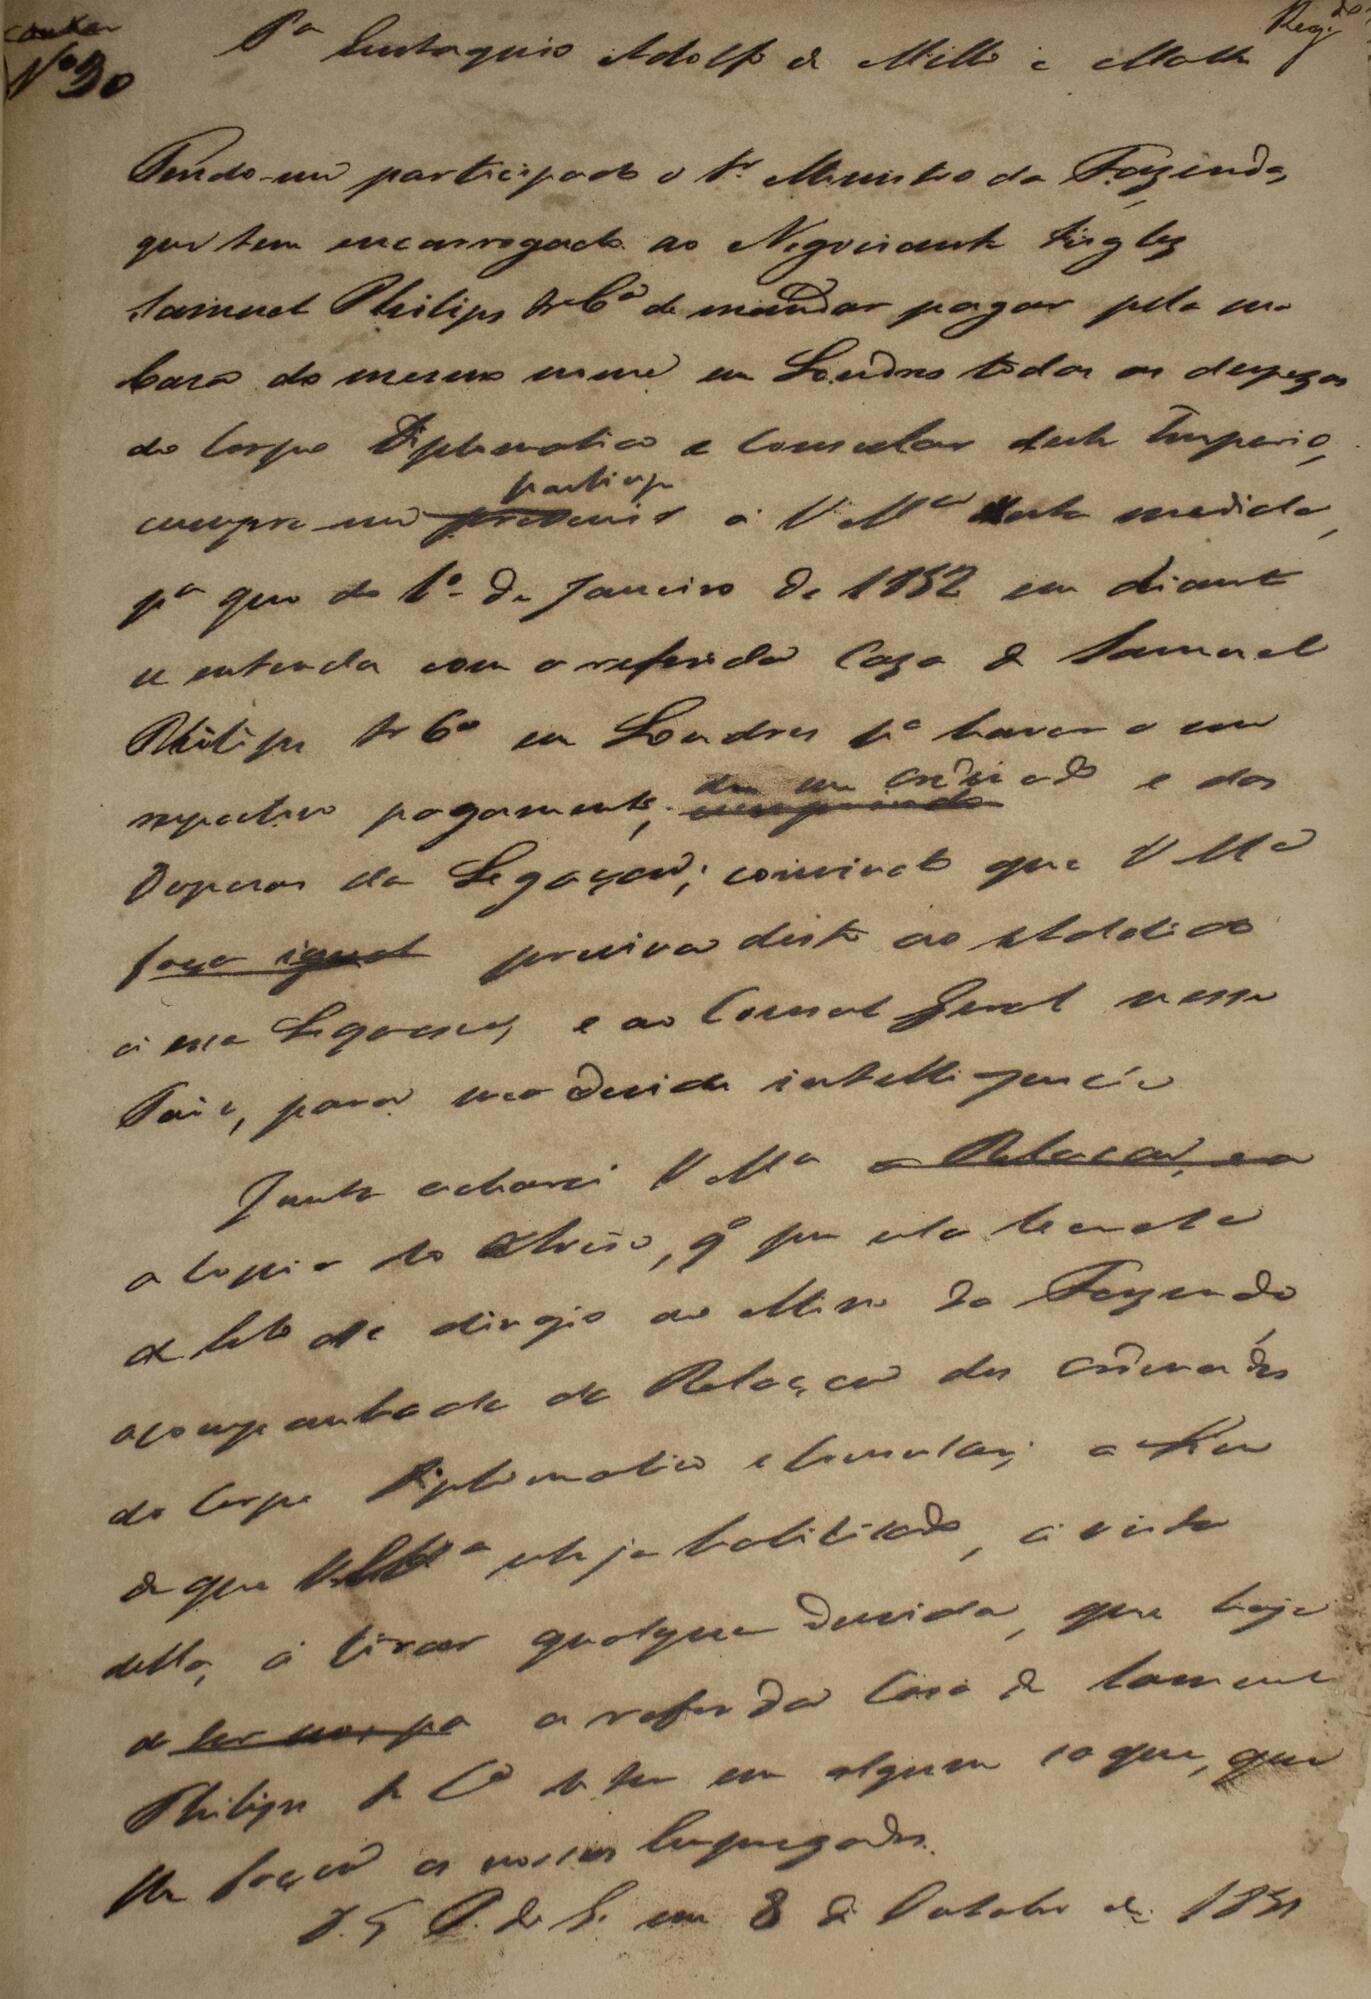 Reg.do
Nº 30
Pª Eustaquio Adolfo de Mello e Matt
Tendo-me participado o Sr. Ministro da Fazenda,
que tem encarregado ao Negociante Inglez
Samuel Philips & Cª de mandar pagar pela sua
Casa do mesmo nome em Londres todas as despezas
do Corpo Diplomatico e Consular deste Imperio,
particip
cumpre-me prevenir á V Mcê desta medida,
pª que do 1º de Janeiro de 1832 em diante
se entenda com a referida Caza de Samuel
Philips & Cº em Londres pª haver o seu
do seu ordenado e das
respectivo pagamento,
Despezas da Legação; convindo que V Mcê
faça igual previna disto ao Addido
á essa Legação, e ao Consul Geral nesse
Paiz, para sua devida intelligencia
Junto achará V Mcê a Relação, e a
a Copia do Aviso, qe por esta Secretª
de Estº se dirigio ao Minº da Fazenda,
acompanhada da Relação dos ordenados
do Corpo Diplomatico e Consular; a fim
de que V Mcê esteja habilitado, á vista
della, á tirar qualquer duvida, que haja
de a referida Casa de Samuel
Philips & Cº ter em algum saque, que
lhe fação os nossos Empregados.
D. G. P. do G. em 8 de Outubro de 1831